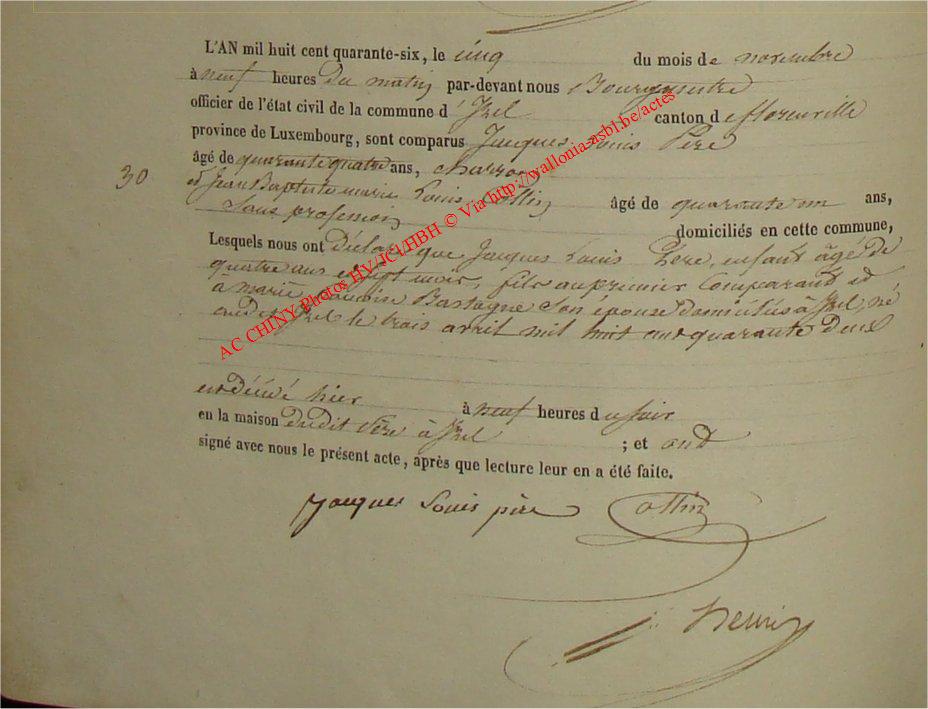 L'AN mil huit cent quarante-six, le cinq du mois de novembre
à neuf heures du matin par-devant nous Bourgmestre
officier de l'état civil de la commune d'Izel canton de florenville
province de Luxembourg, sont comparus Jacques Louis Père
âgé de quarante quatre ans, charron
30
et Jean Baptiste marie Louis Ottin âgé de quarante un ans,
sans profession domiciliés en cette commune,
Lesquels nous ont déclaré que Jacques Louis Père, enfant âgé de
quatre ans et sept mois, fils au premier Comparant et
à marie Bastogne son épouse domiciliés à Izel, né
audit Izel le trois avril mil huit cent quarante deux
est décédé hier à neuf heures du soir
en la maison dudit Père à Izel ; et ont
signé avec nous le présent acte, après que lecture leur en a été faite.
Jacques Louis père Ottin
henri
AC CHINY Photos HV/JCI/HBH © Via http://wallonia-asbl.be/actes